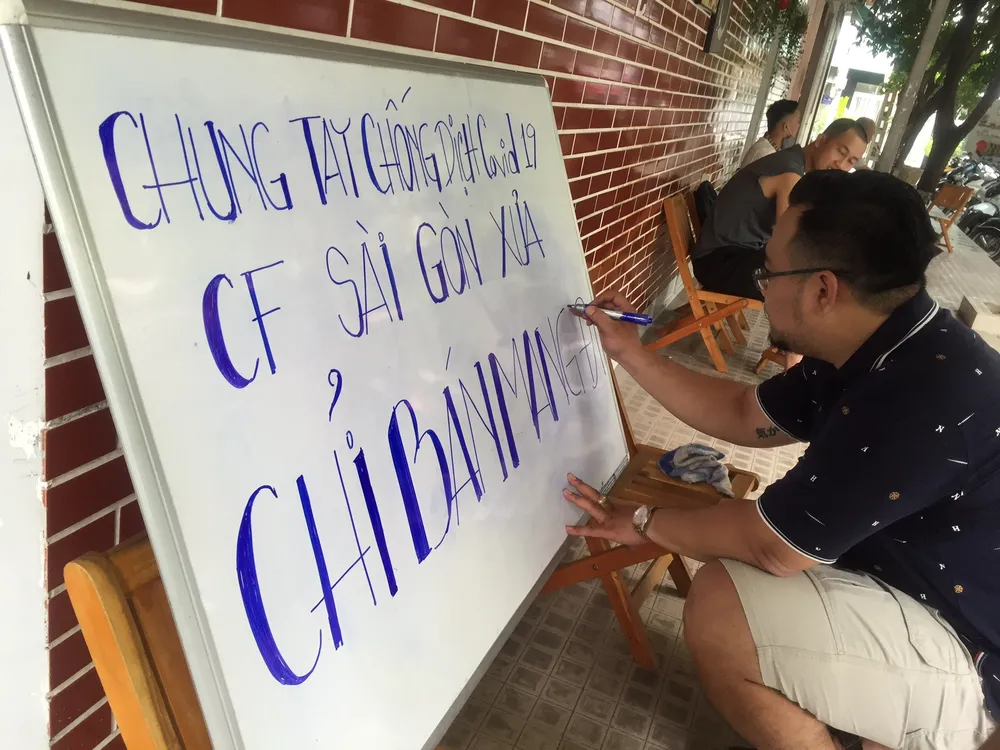 CHUNG TAY CHỐNG DỊCH Covid 19
CF SÀI GÒN XỬA
CHỈ BÁN MANG